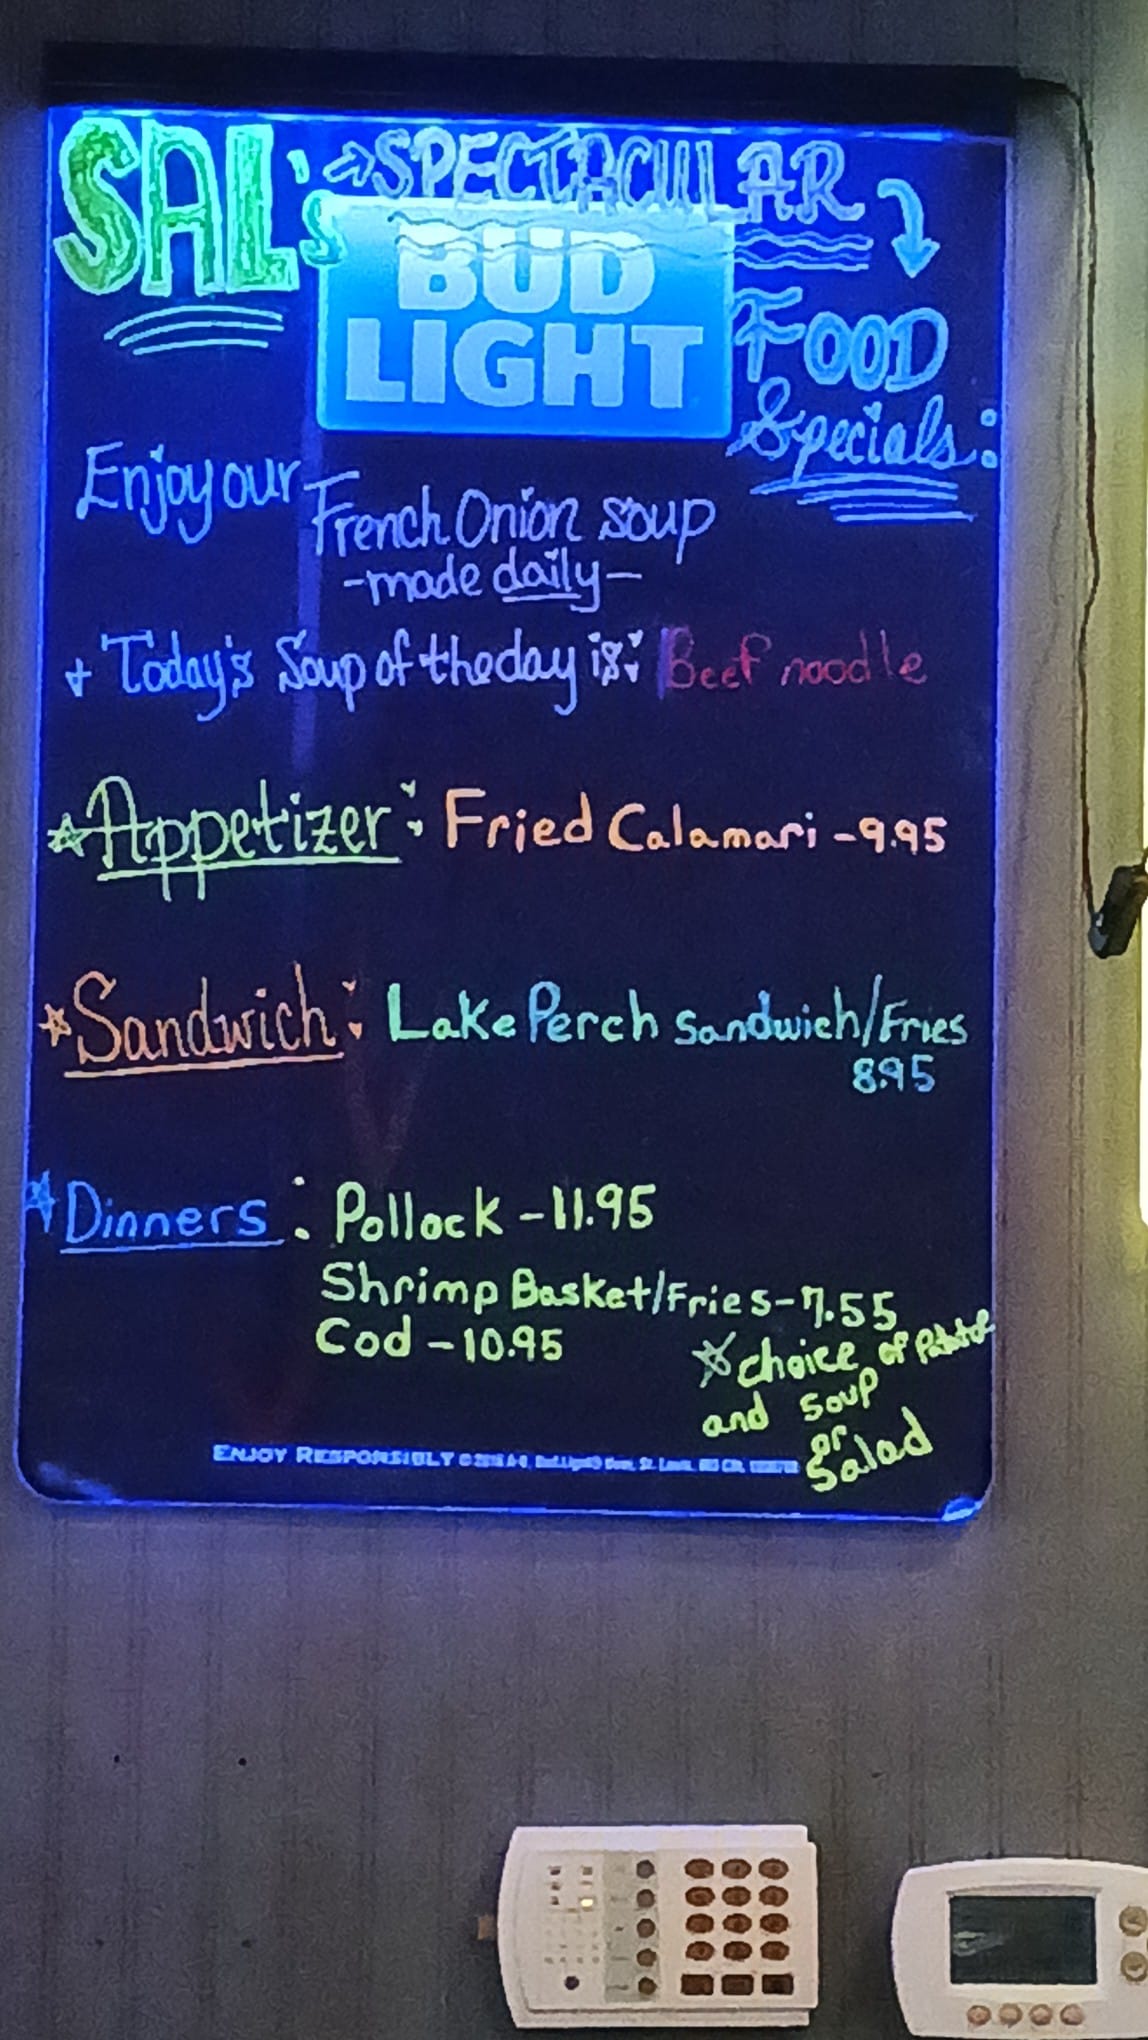 SAL's → SPECTACULAR
BUD
LIGHT
FOOD
Specials:
Enjoy our French Onion soup
-made daily-
+ Today's Soup of the day is: Beef noodle
Appetizer: Fried Calamari - 9.95
Sandwich: Lake Perch Sandwich/Fries
8.95
Dinners: Pollock - 11.95
Shrimp Basket/Fries - 7.55
Cod - 10.95
choice of
and soup
or
Salad
ENJOY RESPONSIBLY